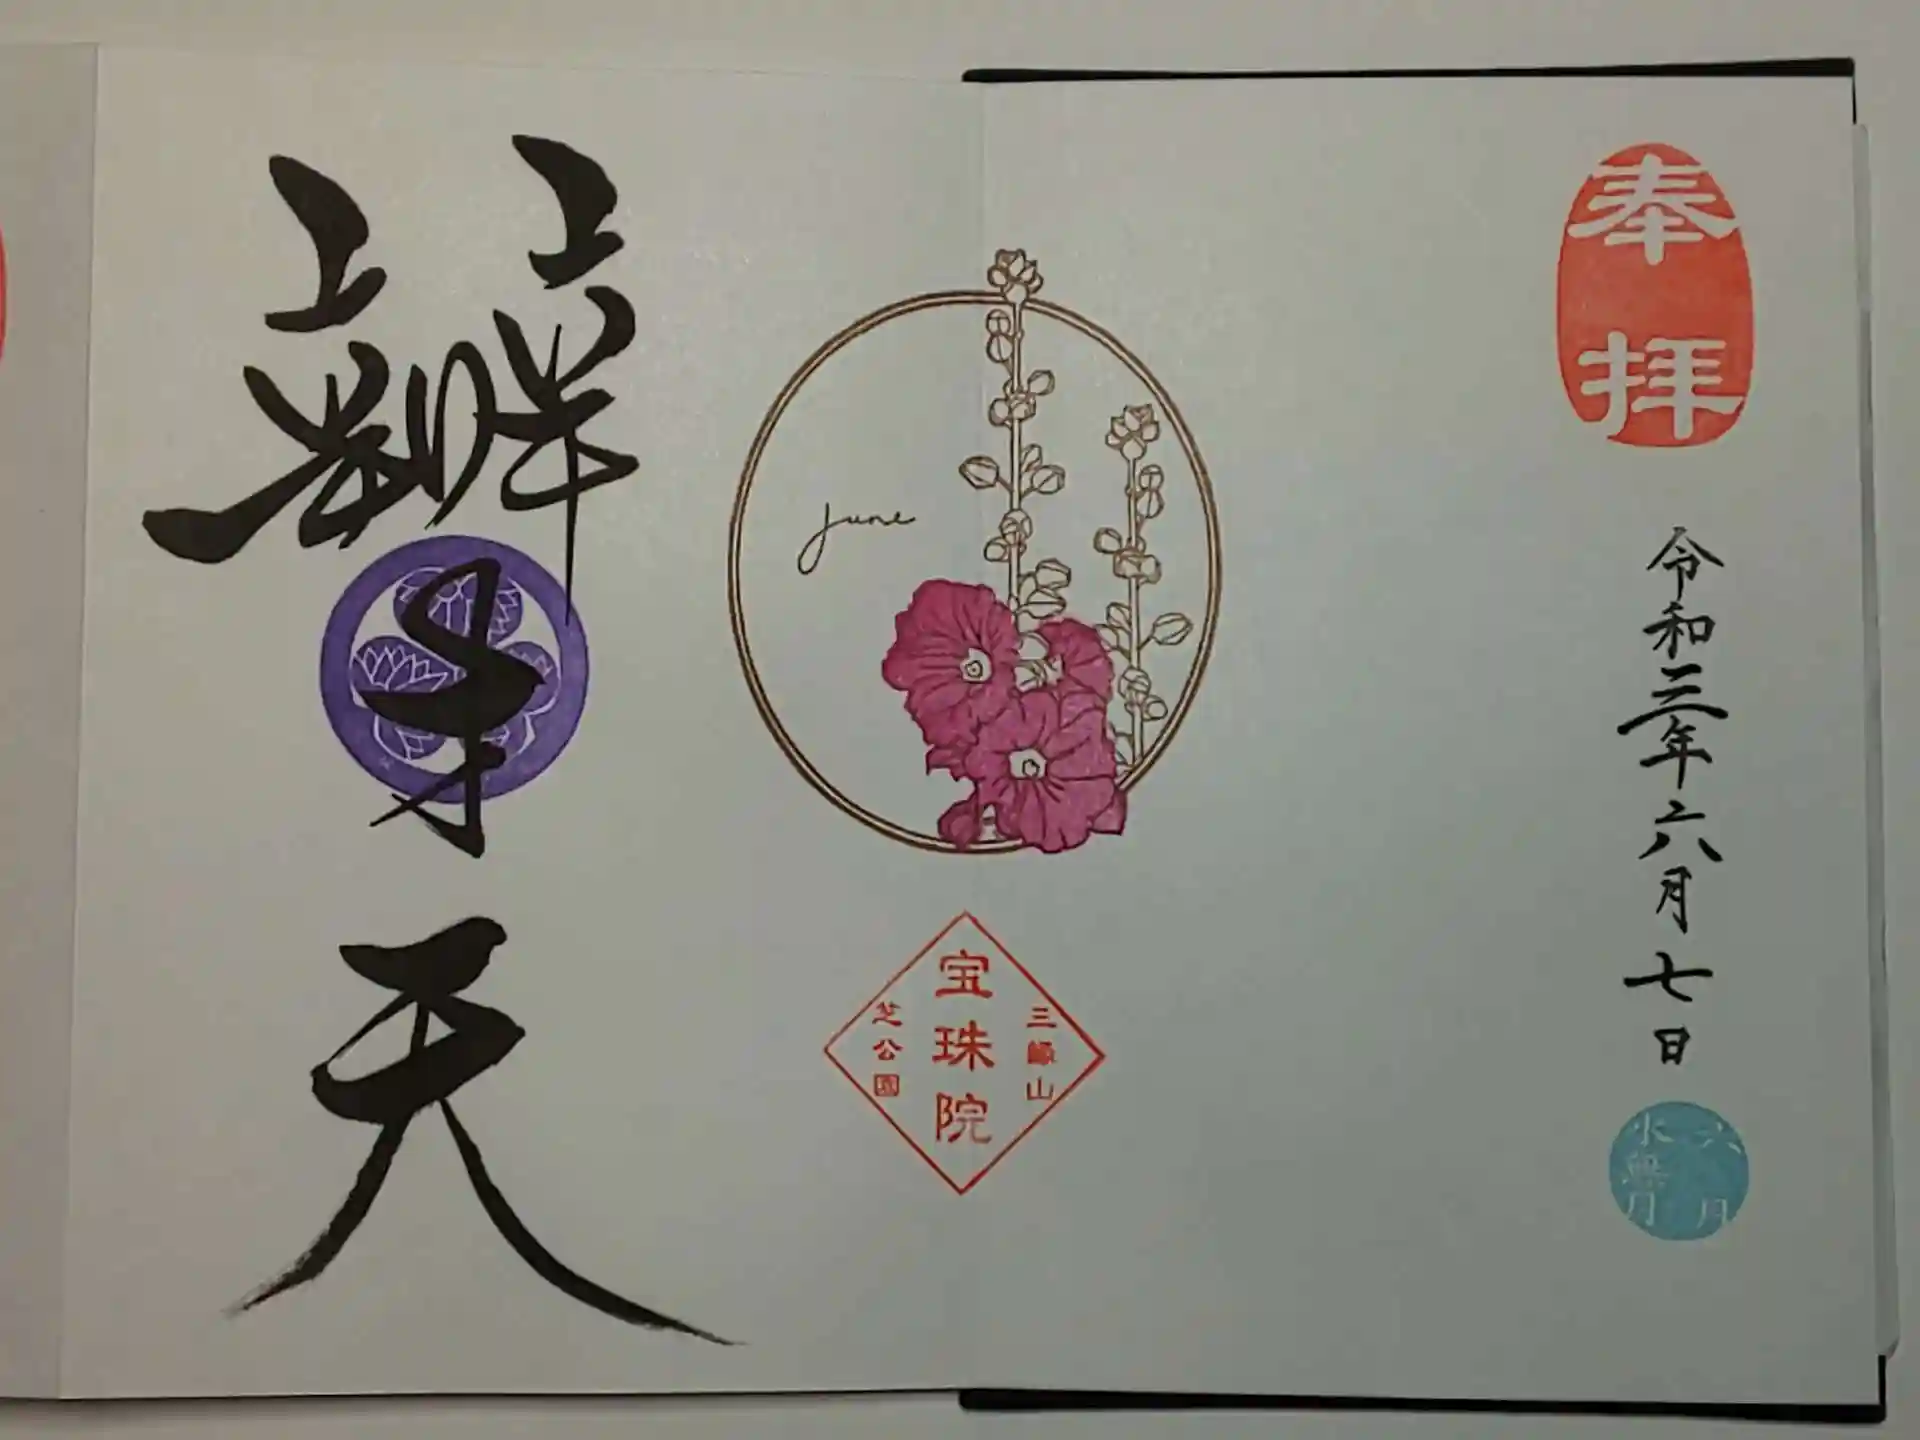 奉拝
令和三年六月七日
六月
水無月
june
三縁山
宝珠院
芝公園
辨才天